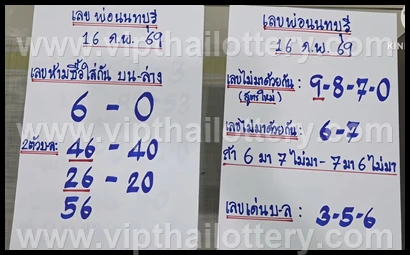 เลขพ่อนนทบุรี
16 ก.พ. 69
เลขห้ามซื้อใส่กัน บน-ล่าง
6 - 0
2ตัวบ-ล: 46 - 40
26 - 20
56
เลขพ่อนนทบุรี
16 ก.พ. 69
เลขไม่มาด้วยกัน : 9-8-7-0
(สูตรใหม่)
เลขไม่มาด้วยกัน : 6-7
ถ้า 6 มา 7 ไม่มา - 7 มา 6 ไม่มา
เลขเด่นบ-ล : 3-5-6
www.vipthailottery.com
www.vipthailottery.com
www.vipthailottery.com
KIN